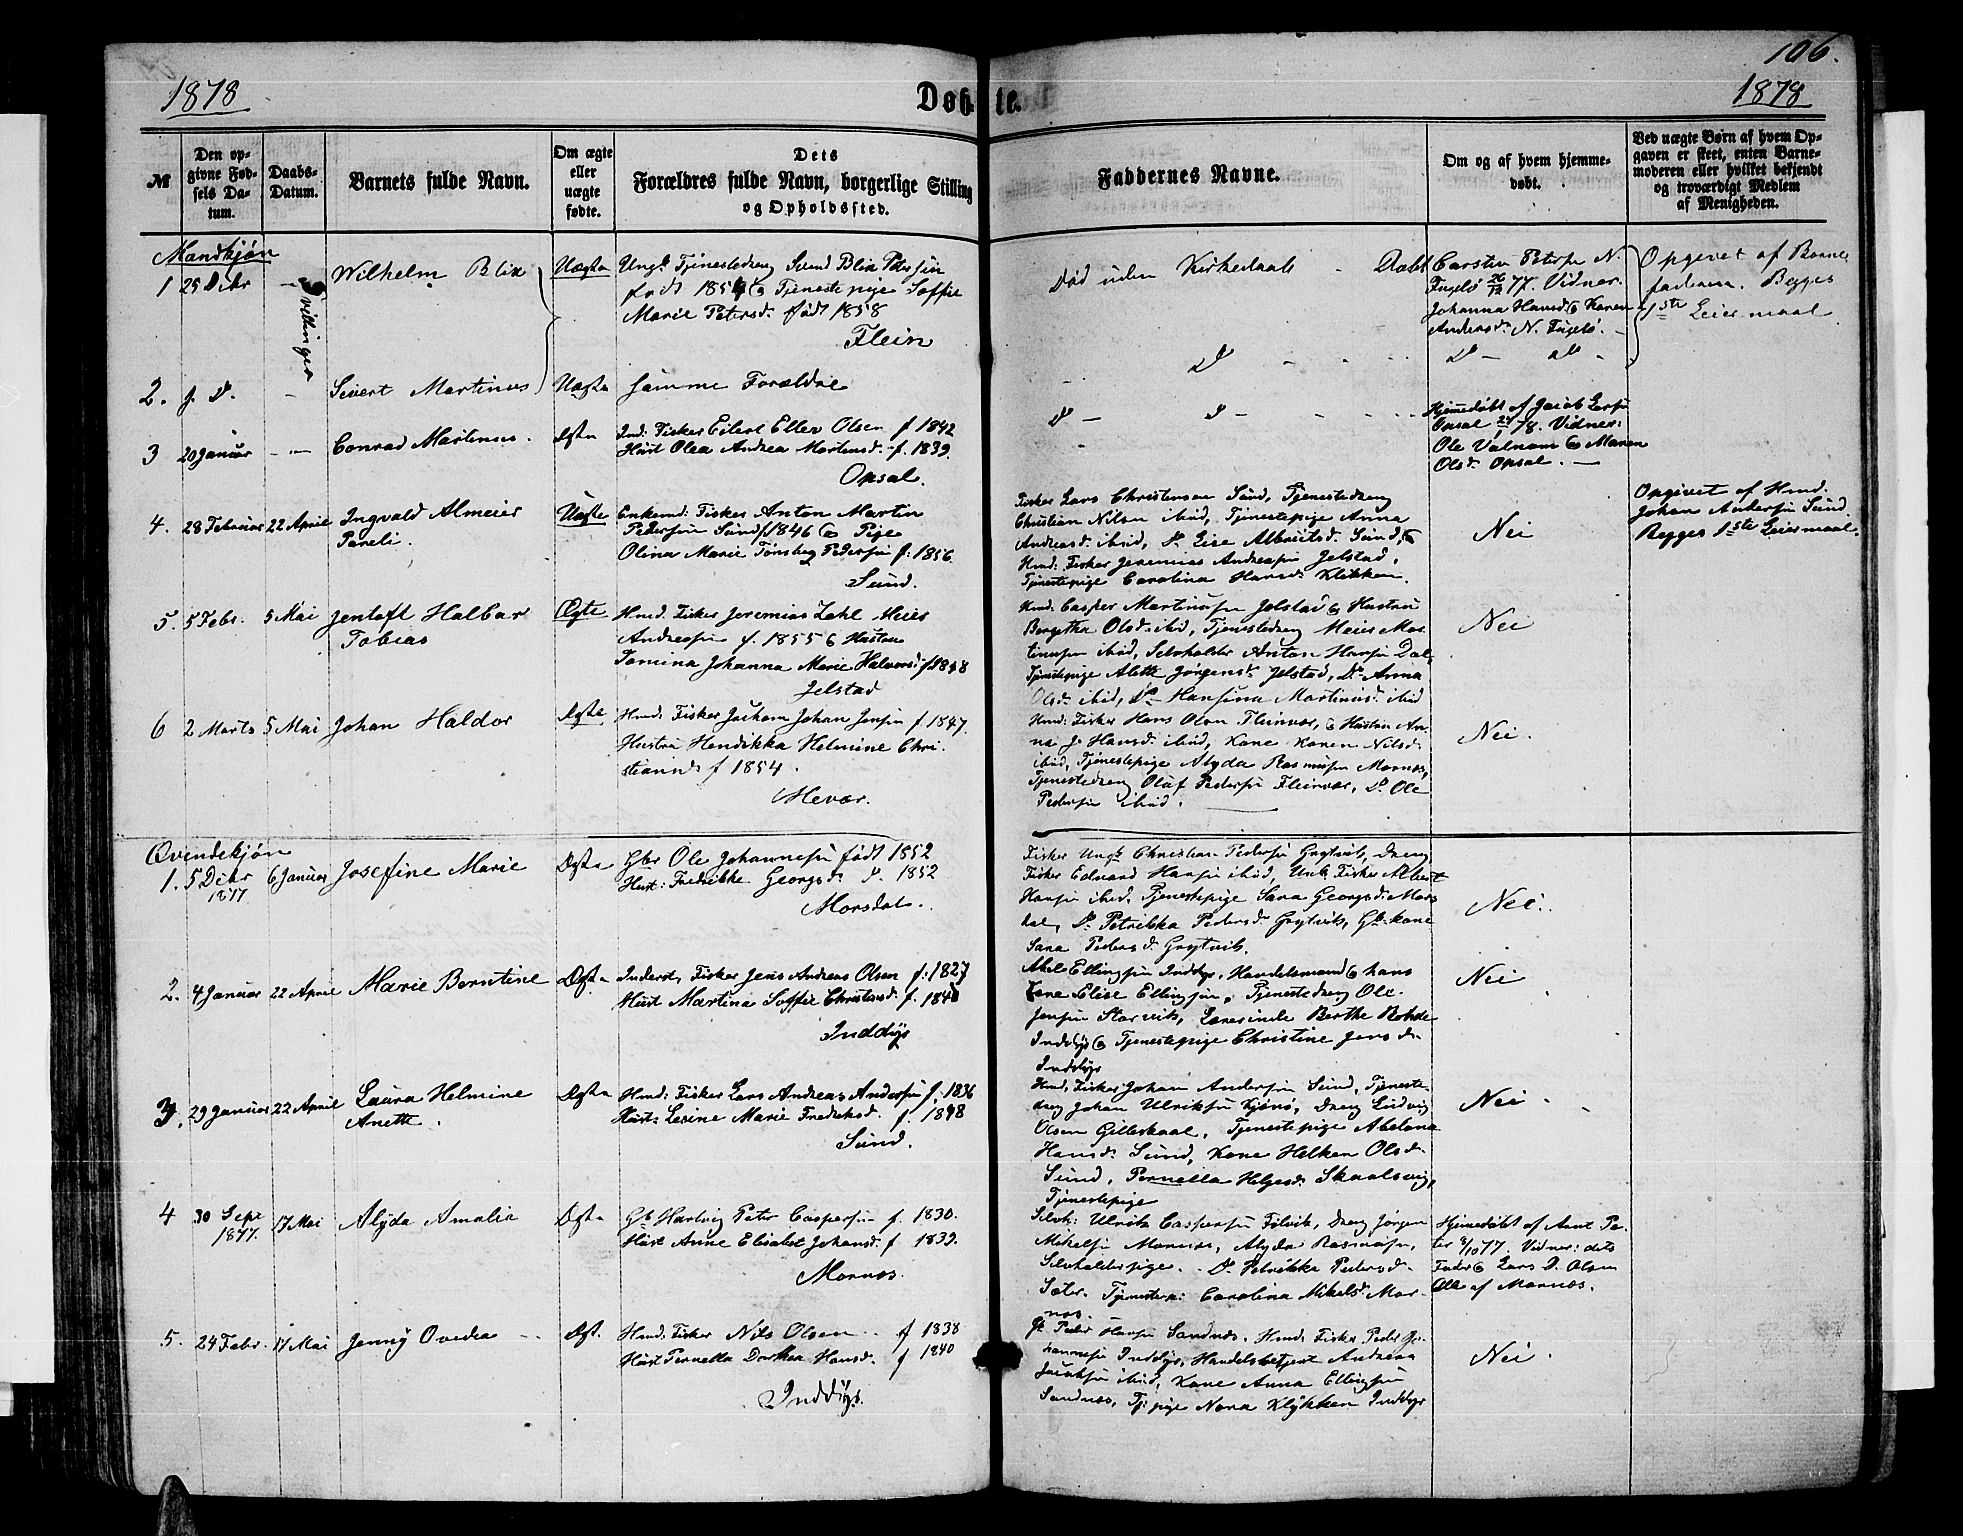 1878
Døbte.
106.
1878
№
Den opgivne Fødsels Datum.
Daabs-Datum.
Barnets fulde Navn.
Om ægte eller uægte fødte.
Dets Forældres fulde Navn, borgerlige Stilling og Opholdssted.
Faddernes Navne.
Om og af hvem hjemmedøbt.
Ved uægte Børn af hvem Opgaven er skeet, enten Barnemoderen eller hvilket bekjendt og troværdigt Medlem af Menigheden.
Mandkjøn
1 25 Dcbr - Tvillinger
Wilhelm Blix
Uægte
Ungk Tjenestedreng Svend Blix Petersen
født 1854 & Tjenestepige Soffie
Marie Petersd. født 1858
Flein
Død uden Kirkedaab - Døbt
Carsten Peters N.
Fugelø 26/12 77. Vidner:
Johanna Hansd & Karen
Andersd. N. Fugelø. -
Opgivet af Barne
faderen. Begges
1ste Leiermaal
2. f. D. -
Sivert Martinus
Uægte
Samme Forældre
D - - -
D - do -
3 20 Januar - -
Conrad Martinus.
Ægte
Ind: Fisker Eilert Eller Olsen f 1842
Hust Olea Andrea Mortensd. f. 1839.
Opsal.
D - D - - - -
Hjemedøbt af Jacob Larsen
Opsal 24/1 78. Vidner:
Ole Valnum & Maren
Olsd. Opsal. -
4. 28 Februar 22 April
Ingvald Almeier
Pareli.
Uægte
Enkemd: Fisker Anton Martin
Pedersen Sund f 1846 & Pige
Olina Marie Tønsberg Pedersen f. 1856.
Sund.
Fisker Lars Christensen Sund, Tjenestedreng
Christian Nilsen ibid, Tjenestepige Anna
Andreasd. ibid, D. Lise Albrigtsd. Sund, &
Hmd: Fisker Jeremias Andreasen Jelstad,
Tjenestepige Carolina Hansd. Klikken.
Nei
Opgivet af Hmd.
Johan Andersen Sund.
Begges 1ste Leiermaal.
5. 5 Febr. 5 Mai
Jentoft Halbar
Tobias
Ægte
Hmd. Fisker Jeremias Zahl Meier
Andreasen f. 1855 & Hustru
Tomina Johanna Marie Halvorsd. f 1858
Jelstad
Hmd: Casper Martinusen Jelstad & Hustru
Bergitha Olsd. ibid, Tjenestedreng Meier Mar-
tinusen ibid, Selvholder Anton Hansen Dal,
Tjenestepige Aletta Jørgensd. Jelstad, D. Anna
Olsd. ibid, D. Hansina Martinusd. ibid
Nei
6 2 Marts 5 Mai
Johan Haldor
Ægte
Hmd: Fisker Jochom Johan Jensen f. 1847.
Hustru Hendikka Helmine Chri-
stiansd. f 1854.
Hevær.
Hmd: Fisker Hans Olsen Fleinvær, & Hustru An-
na J. Hansd. ibid, Kone Karen Nilsd.
ibid, Tjenestepige Alyda Rasmusen Mornæs,
Tjenestedreng Oluf Pedersen Fleinvær, D. Ole
Pedersen ibid.
Nei.
Qvindekjøn
1. 5 Dcbr 1877 6 Januar
Josefine Marie
Ægte
Gbr Ole Johannesen født 1852
Hust: Fredrikke Georgsd. f. 1852
Morsdal.
Fisker Ungk Christian Pedersen Grytvik, Dreng
Fisker Edvard Hansen ibid, Ungk Fisker Albert
Hansen ibid, Tjenestepige Sara Georgsd. Mors
dal, D. Petrikka Pedersd. Grytvik, Gb. kone
Sara Pedersd. Grytvik.
Nei.
2. 4 Januar 22 April
Marie Berntine
Ægte
Inderst, Fisker Jens Andreas Olsen f. 1827
Hust Martina Soffie Christensd. f. 1840
Inddys
Abel Ellingsen Inddyr, Handelsmand & hans
Kone Elise Ellingsen, Tjenestedreng Ole
Jensen Storvik, Lærerinde Berthe Bohde
Inddys & Tjenestepige Christine Jensd.
Inddys
Nei
3. 29 Januar 22 April
Laura Helmine
Anette.
Ægte
Hmd: Fisker Lars Andreas Andersen f. 1836
Hust: Lesine Marie Fredriksd. f. 1848
Sund.
Hmd, Fisker Johan Andersen Sund, Tjeneste-
dreng Johan Ulriksen Kjønø, Dreng Ludvig
Olsen Gilleskaal, Tjenestepige Abelona
Hansd. Sund, Kone Helken Olsd.
Sund, Pernella Helgesd. Skaalsvig,
Tjenestepige
Nei.
4 30 Sept 1877. 17 Mai
Alyda Amalia
Ægte
Gb. Hartvig Peter Caspersen f. 1830.
Hust Anne Elisabet Johansd. f 1839.
Mornæs.
Selvh: Ulrik Caspersen Følvik, Dreng Jørgen
Mikelsen Mornæs, Alyda Rasmusen,
Selvholderpige. D. Petrikka Pedersd.
Sæter. Tjenesterp: Carolina Mikelsd. Mor-
næs
Hjemedøbt af Arnt Pe-
ter 8/10 77. Vidner: dets
Fader & Lars D. Olsen
Alle af Mornæs.
5. 24 Febr. 17 Mai
Jenny Ovedia
Ægt.
Hmd: Fisker Nils Olsen f 1838
Hust Pernella Dorthea Hansd. f 1840
Inddys.
Gb Peder Hansen Sandnæs, Hmd: Fisker Peder Jo-
hannesen Inddys, Handelsbetjent Andreas
Jacobsen ibid, Kone Anna Ellingsen
Sandnæs, Tj: pige Nora Klykken Inddys
Nei.